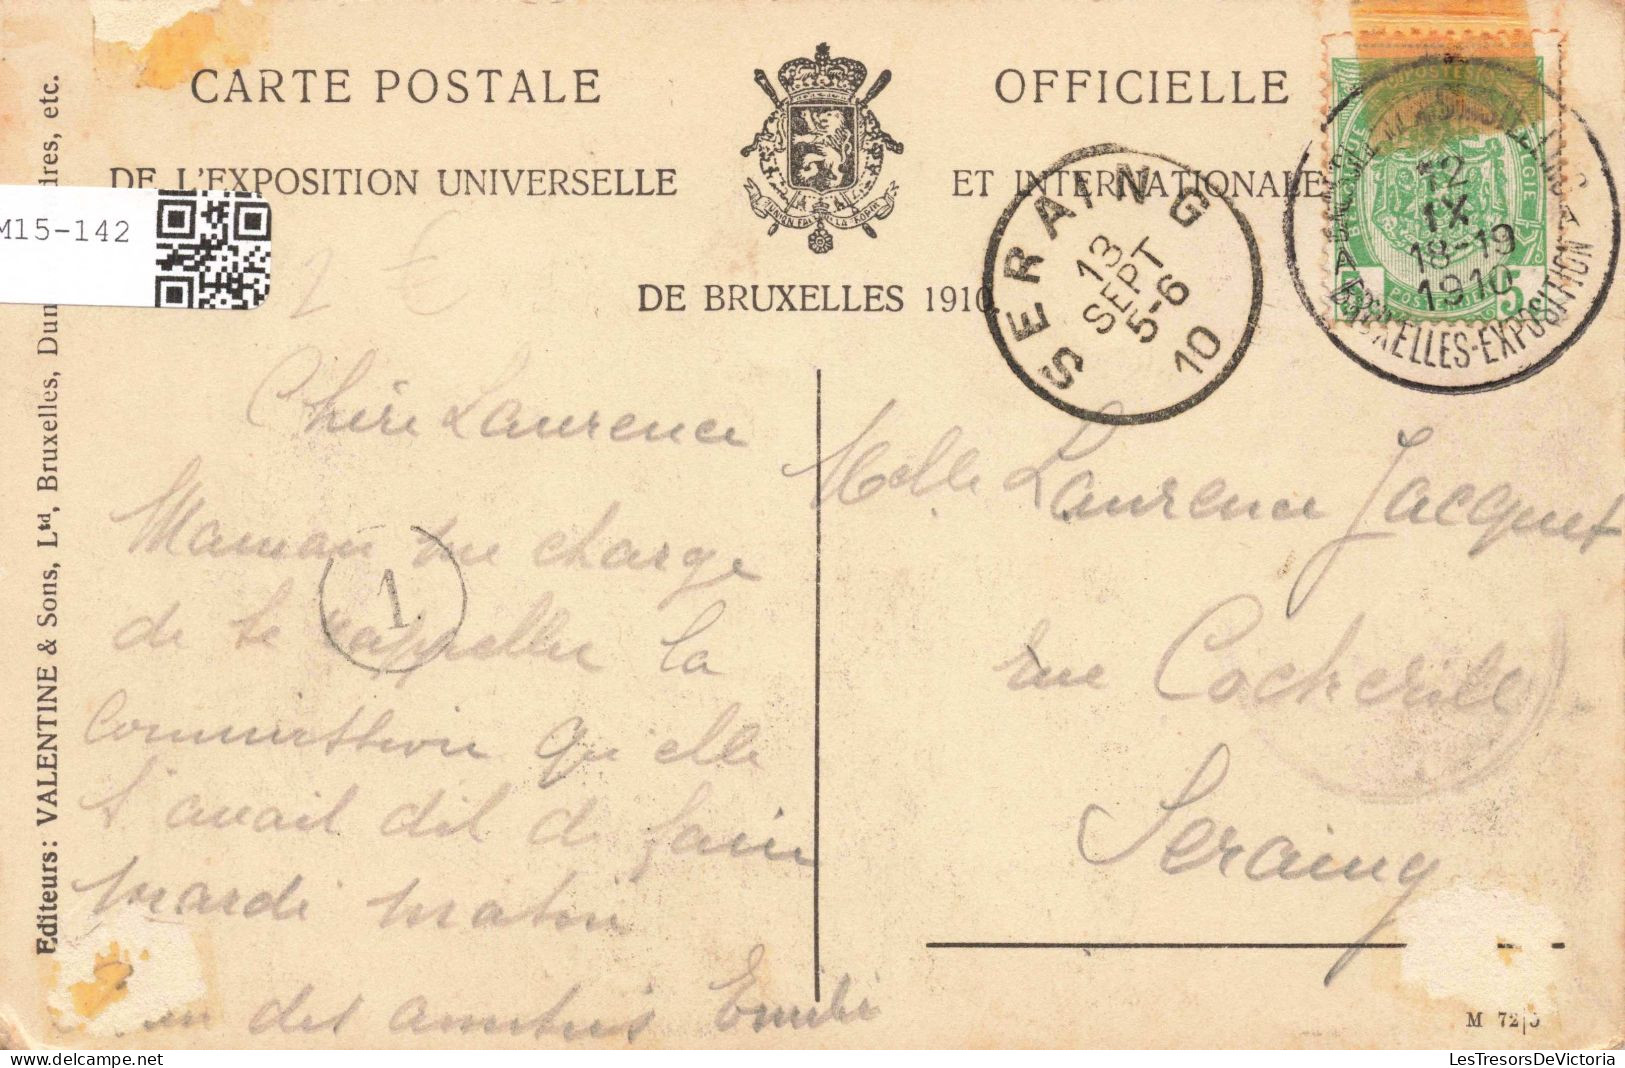 CARTE POSTALE OFFICIELLE
DE L'EXPOSITION UNIVERSELLE ET INTERNATIONALE
DE BRUXELLES 1910.
M15-142
2 €
Editeurs: VALENTINE & Sons, Ltd, Bruxelles, Dun
ires, etc.
SERAING
13
SEPT
5-6
10
12
IX
18-19
1910
BRUXELLES-EXPOSITION
BELGIQUE
BELGIE
POSTERIJEN
5
Chère Laurence
Maman me charge
de te rappeller la
commission qu'elle
t'avait dit de faire
mardi matin
des amitiés Emile
1
Melle Laurence Jacquet
rue Cockerill
Seraing
M 72
LesTresorsDeVictoria
delcampe.net